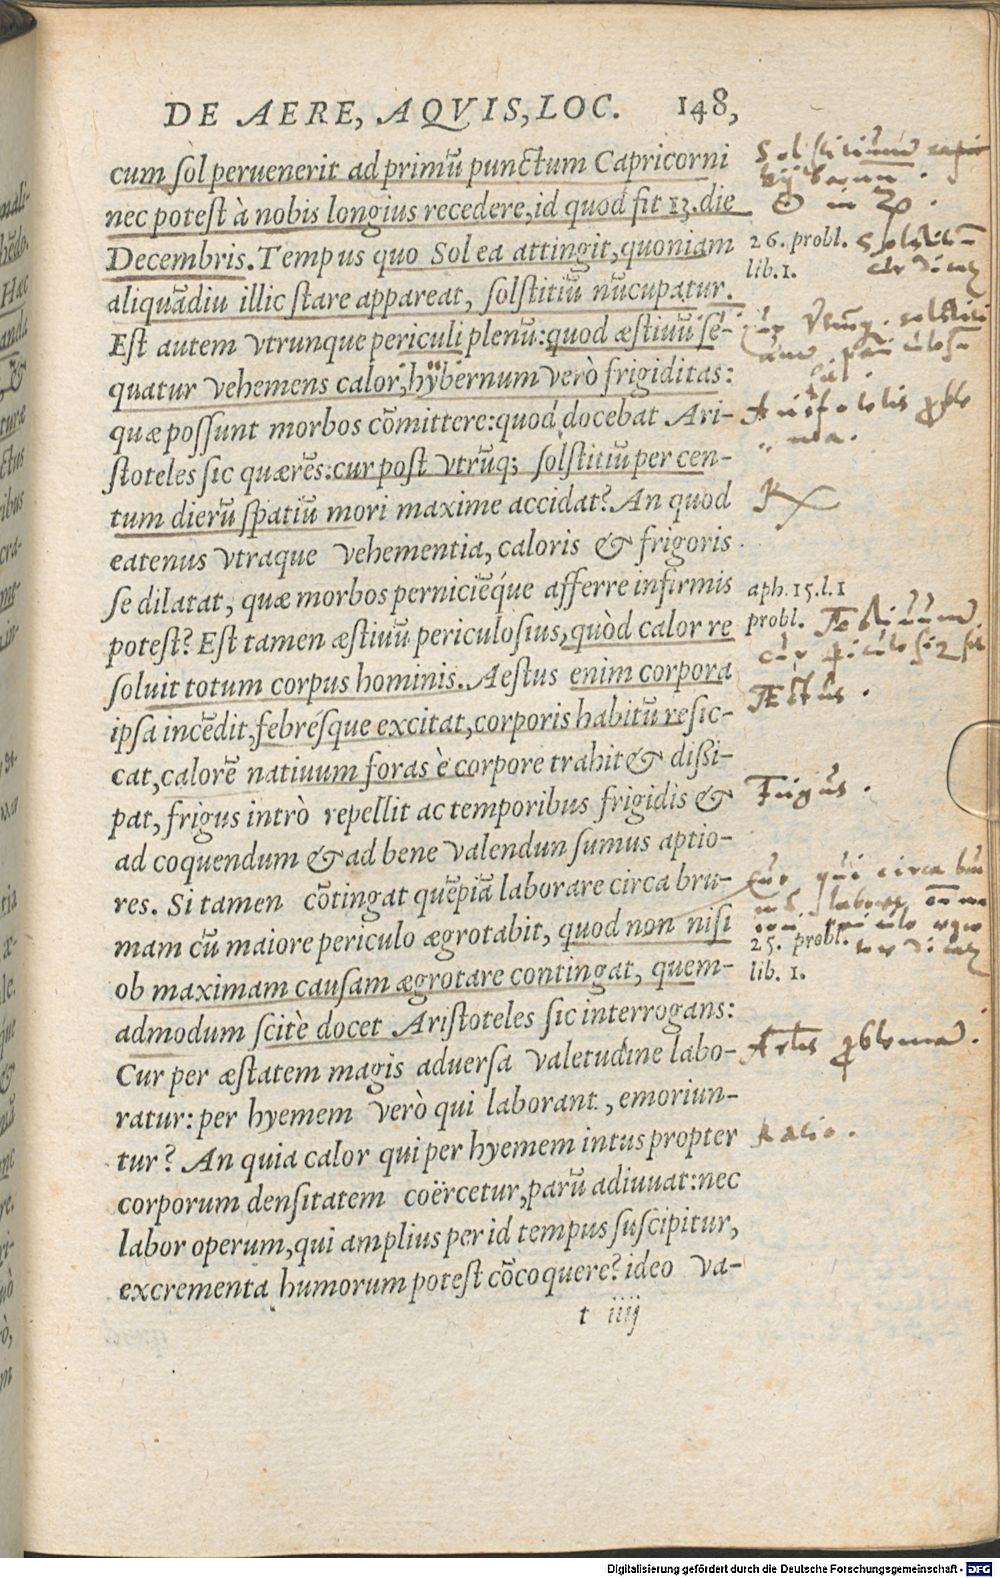 DE AERE, AQVIS, LOC. 148,
cum sòl peruenerit ad primũ punctum Capricorni
nec potest à nobis longius recedere, id quod fit 13. die
Decembris. Tempus quo Sol ea attingit, quoniam
26. probl.
lib. 1.
aliquãdiu illic stare appareat, solstitiũ nũcupatur.
Est autem vtrunque periculi plenũ: quod æstiuũ se-
quatur vehemens calor, hybernum verò frigiditas:
quæ possunt morbos cõmittere: quod docebat Ari-
Aristotelis
stoteles sic quærẽs: cur post vtrũq; solstitiũ per cen-
tum dierũ spatiũ mori maxime accidat? An quod
eatenus vtraque vehementia, caloris & frigoris
se dilatat, quæ morbos perniciẽq́ue afferre infirmis
aph. 15. l. 1
probl.
potest? Est tamen æstiuũ periculosius, quòd calor re
soluit totum corpus hominis. Aestus enim corpora
Æstus.
ipsa incẽdit, febresque excitat, corporis habitũ resic-
cat, calorẽ natiuum foras è corpore trahit & dissi-
pat, frigus intrò repellit ac temporibus frigidis &
Frigus.
ad coquendum & ad bene valendun sumus aptio-
res. Si tamen cõtingat quẽpiã laborare circa bru-
Cur qui circa
mam cũ maiore periculo ægrotabit, quod non nisi
25. probl.
lib. 1.
ob maximam causam ægrotare contingat, quem-
admodum scitè docet Aristoteles sic interrogans:
Cur per æstatem magis aduersa valetudine labo-
ratur: per hyemem verò qui laborant, emoriun-
tur? An quia calor qui per hyemem intus propter
Ratio.
corporum densitatem coërcetur, parũ adiuuat: nec
labor operum, qui amplius per id tempus suscipitur,
excrementa humorum potest cõcoquere? ideo va-
t iiij
Digitalisierung gefördert durch die Deutsche Forschungsgemeinschaft - DFG